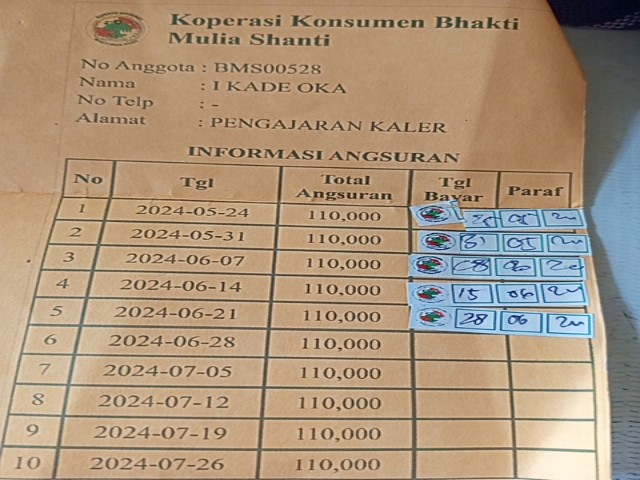 Koperasi Konsumen Bhakti
Mulia Shanti
No Anggota : BMS00528
Nama : I KADE OKA
No Telp : -
Alamat : PENGAJARAN KALER
INFORMASI ANGSURAN
No Tgl Total Angsuran Tgl Bayar Paraf
1 2024-05-24 110,000
2 2024-05-31 110,000 31 05 24
3 2024-06-07 110,000 08 06 24
4 2024-06-14 110,000 15 06 24
5 2024-06-21 110,000 28 06 24
6 2024-06-28 110,000
7 2024-07-05 110,000
8 2024-07-12 110,000
9 2024-07-19 110,000
10 2024-07-26 110,000